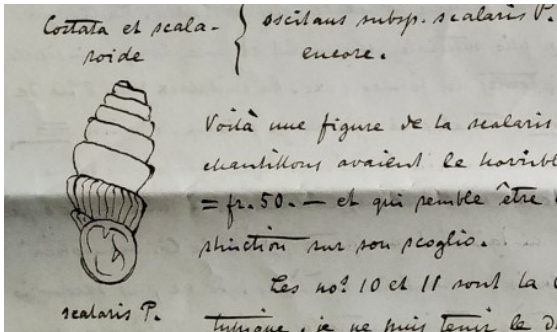 Costata et scala-
roide
oscitans subsp. scalaris P.
encore.
Voilà une figure de la scalaris
chantillons avaient le horrible
= fr. 50. — et qui semble être
stinction sur son scoglio.
Les nos. 10 et 11 sont la
scalaris P.
typique, je ne puis tenir le